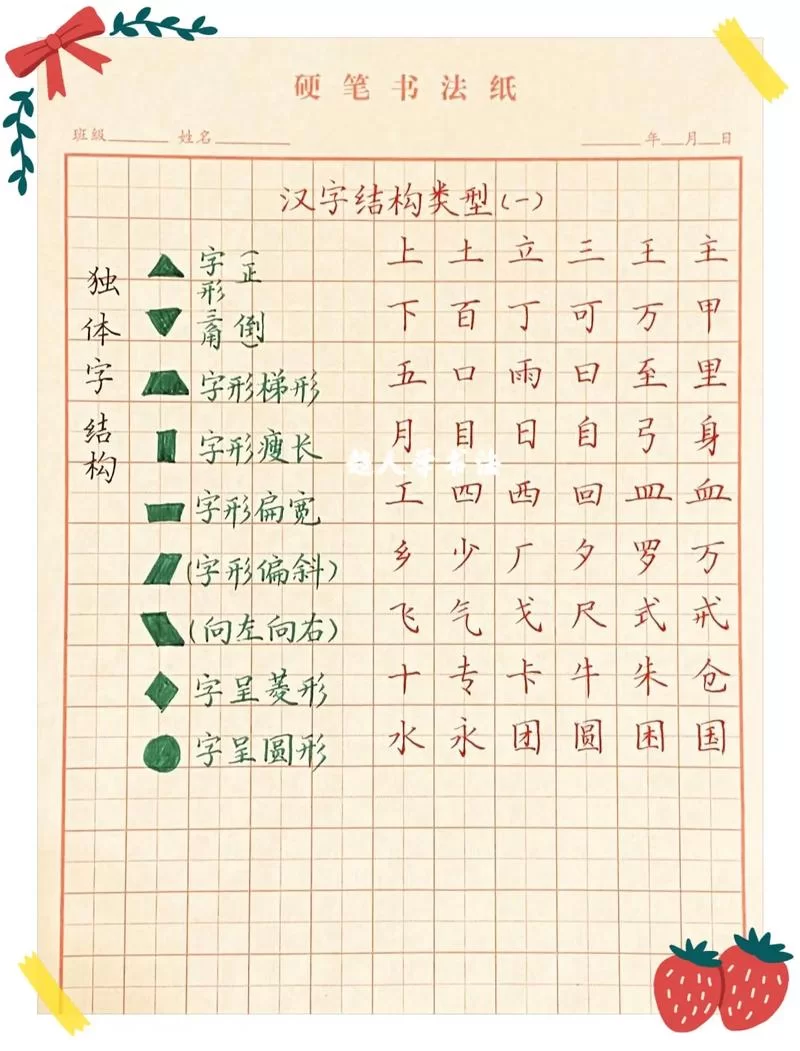 硬笔书法纸
班级 姓名 年 月 日
汉字结构类型(一)
独体字结构
字形三角(正 上 土 立 三 王 主
倒) 下 百 丁 可 万 甲
字形梯形 五 口 雨 曰 至 里
字形瘦长 月 目 日 自 弓 身
字形扁宽 工 四 西 回 皿 血
(字形偏斜) 乡 少 厂 夕 罗 万
(向左向右) 飞 气 戈 尺 式 戒
字呈菱形 十 专 卡 牛 朱 仓
字呈圆形 水 永 团 圆 困 国
人学书法